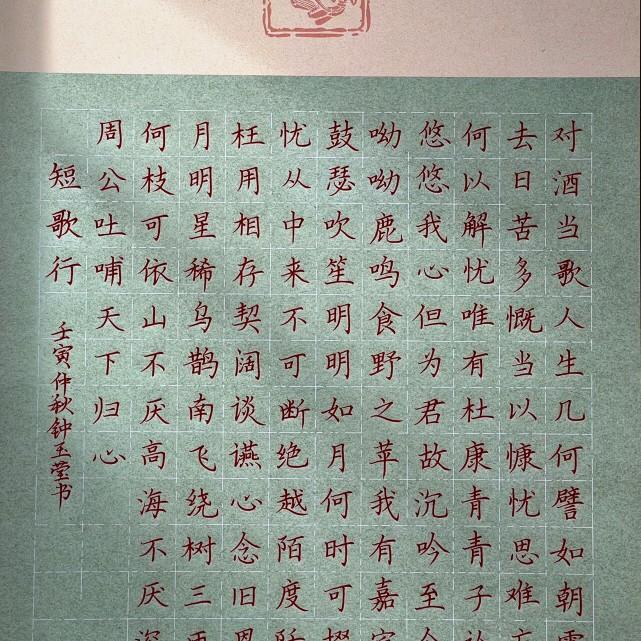 对酒当歌人生几何譬如朝
去日苦多慨当以慷忧思难
何以解忧唯有杜康青青子
悠悠我心但为君故沉吟至
呦呦鹿鸣食野之苹我有嘉
鼓瑟吹笙明明如月何时可
忧从中来不可断绝越陌度
枉用相存契阔谈讌心念旧
月明星稀乌鹊南飞绕树三
何枝可依山不厌高海不厌
周公吐哺天下归心
短歌行 壬寅仲秋钟玉莹书